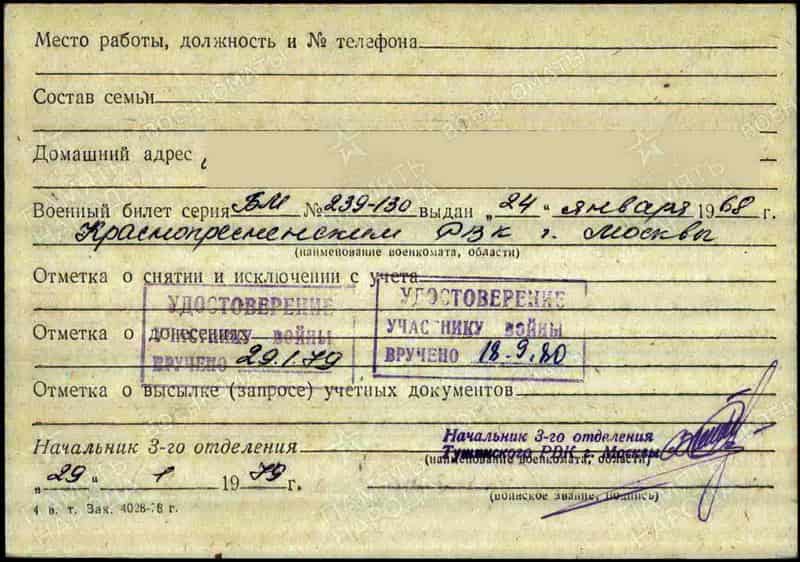 Место работы, должность и № телефона
Состав семьи
Домашний адрес
Военный билет серия БМ № 239-130 выдан „24“ января 1968 г.
Краснопресненским РВК г. Москвы
(наименование военкомата, области)
Отметка о снятии и исключении с учета
УДОСТОВЕРЕНИЕ УДОСТОВЕРЕНИЕ
Отметка о донесениях
УЧАСТНИКУ ВОЙНЫ УЧАСТНИКУ ВОЙНЫ
ВРУЧЕНО 29.1.79 ВРУЧЕНО 18.9.80
Отметка о высылке (запросе) учетных документов
Начальник 3-го отделения Начальник 3-го отделения
Тушинского РВК г. Москвы
(наименование военкомата, области)
„29“ 1 1979 г.
(воинское звание, подпись)
4 в. т. Зак. 4028-78 г.
ПАМЯТЬ НАРОДА
ВОЕНКОМАТЫ